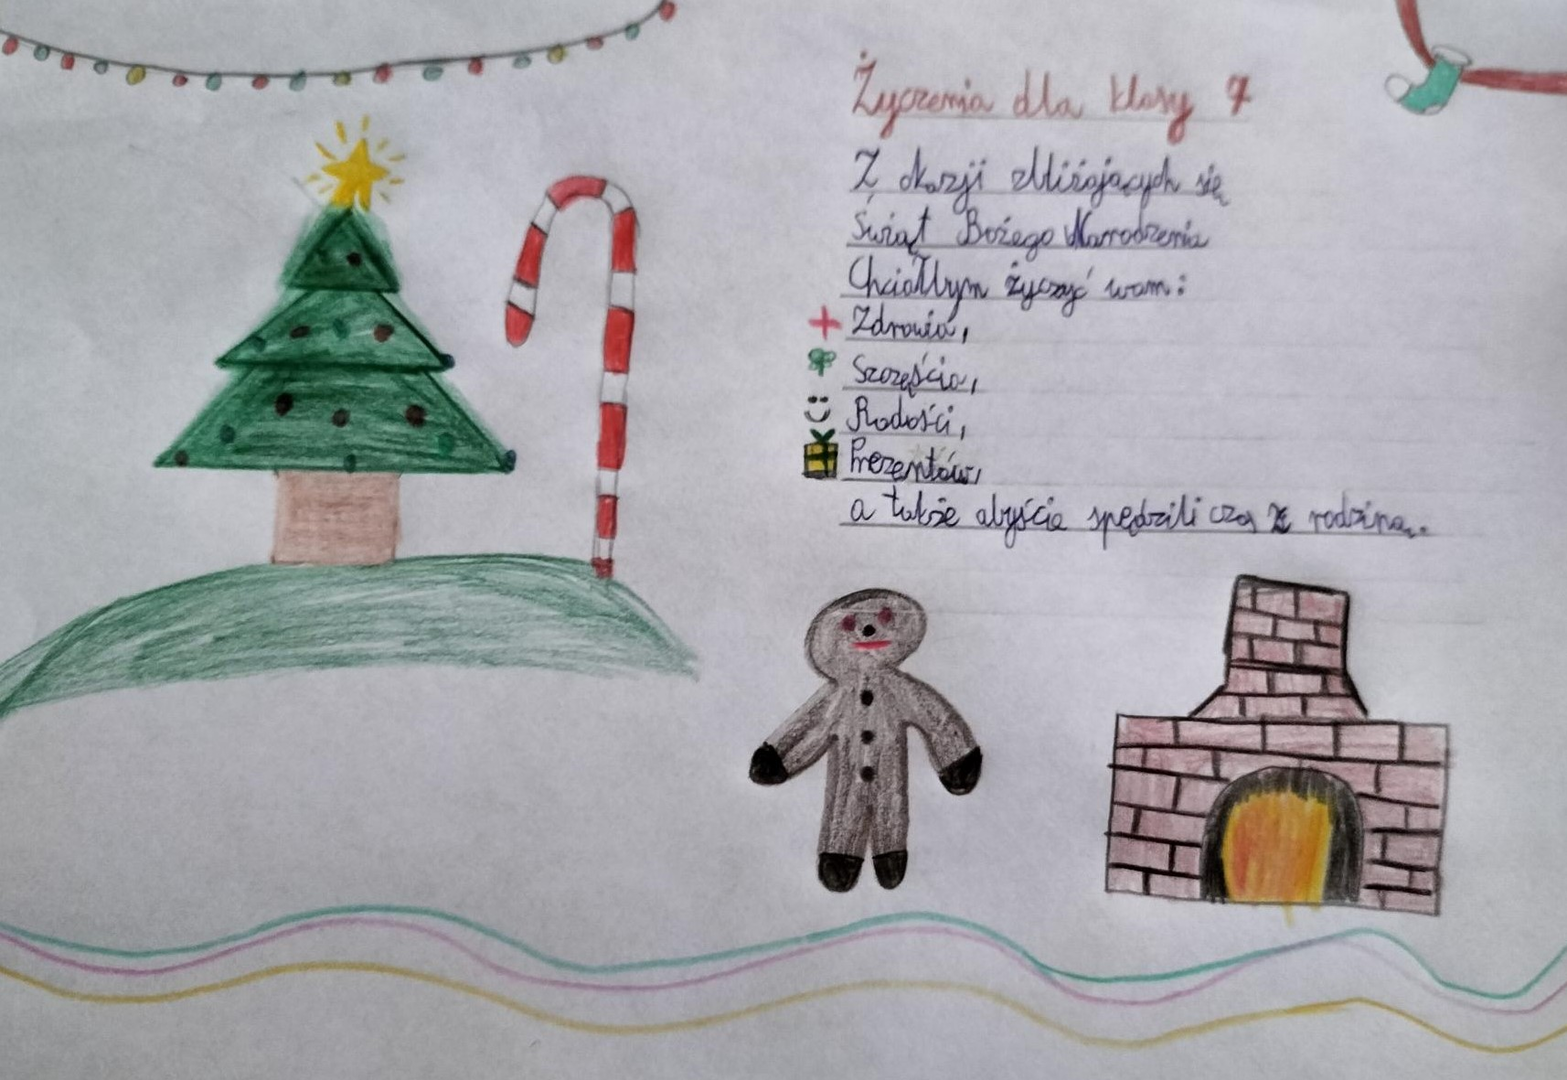 Życzenia dla klasy 7
Z okazji zbliżających się
Świąt Bożego Narodzenia
Chciałbym życzyć wam:
Zdrowia,
Szczęścia,
Radości,
Prezentów,
a także abyście spędzili czas z rodziną.